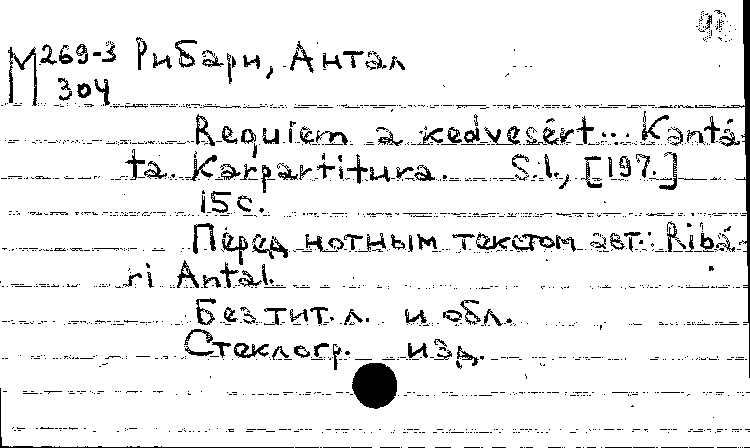 М 269-3 Рибари, Антал
304
Requiem a kedvesért... Kantá-
ta. Karpartitura. S.l., [197.]
15 с.
Перед нотным текстом авт.: Ribá-
ri Antal.
Без тит. л. и обл.
Стеклогр. изд.